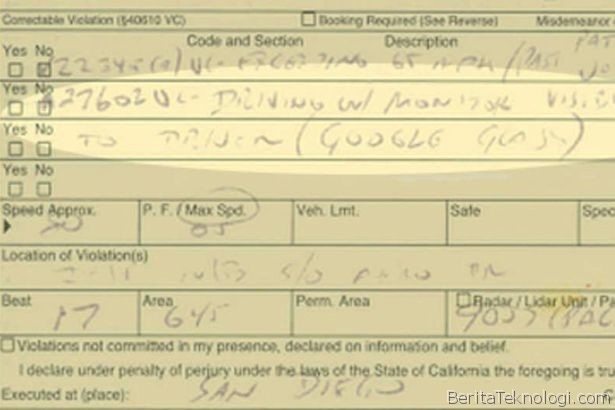 Correctable Violation (§40610 VC) Booking Required (See Reverse) Misdemeanor
Yes No Code and Section Description
22349(a) VC- EXCEEDING 65 MPH /
Yes No
27602 VC- DRIVING W/ MONITOR VISIB
Yes No
TO DRIVER (GOOGLE GLASS)
Yes No
Speed Approx. P. F. / Max Spd. Veh. Lmt. Safe Spec
65
Location of Violation(s)
S/O
Beat Area Perm. Area Radar / Lidar Unit / Pa
17 645
Violations not committed in my presence, declared on information and belief.
I declare under penalty of perjury under the laws of the State of California the foregoing is tru
Executed at (place): SAN DIEGO
BeritaTeknologi.com